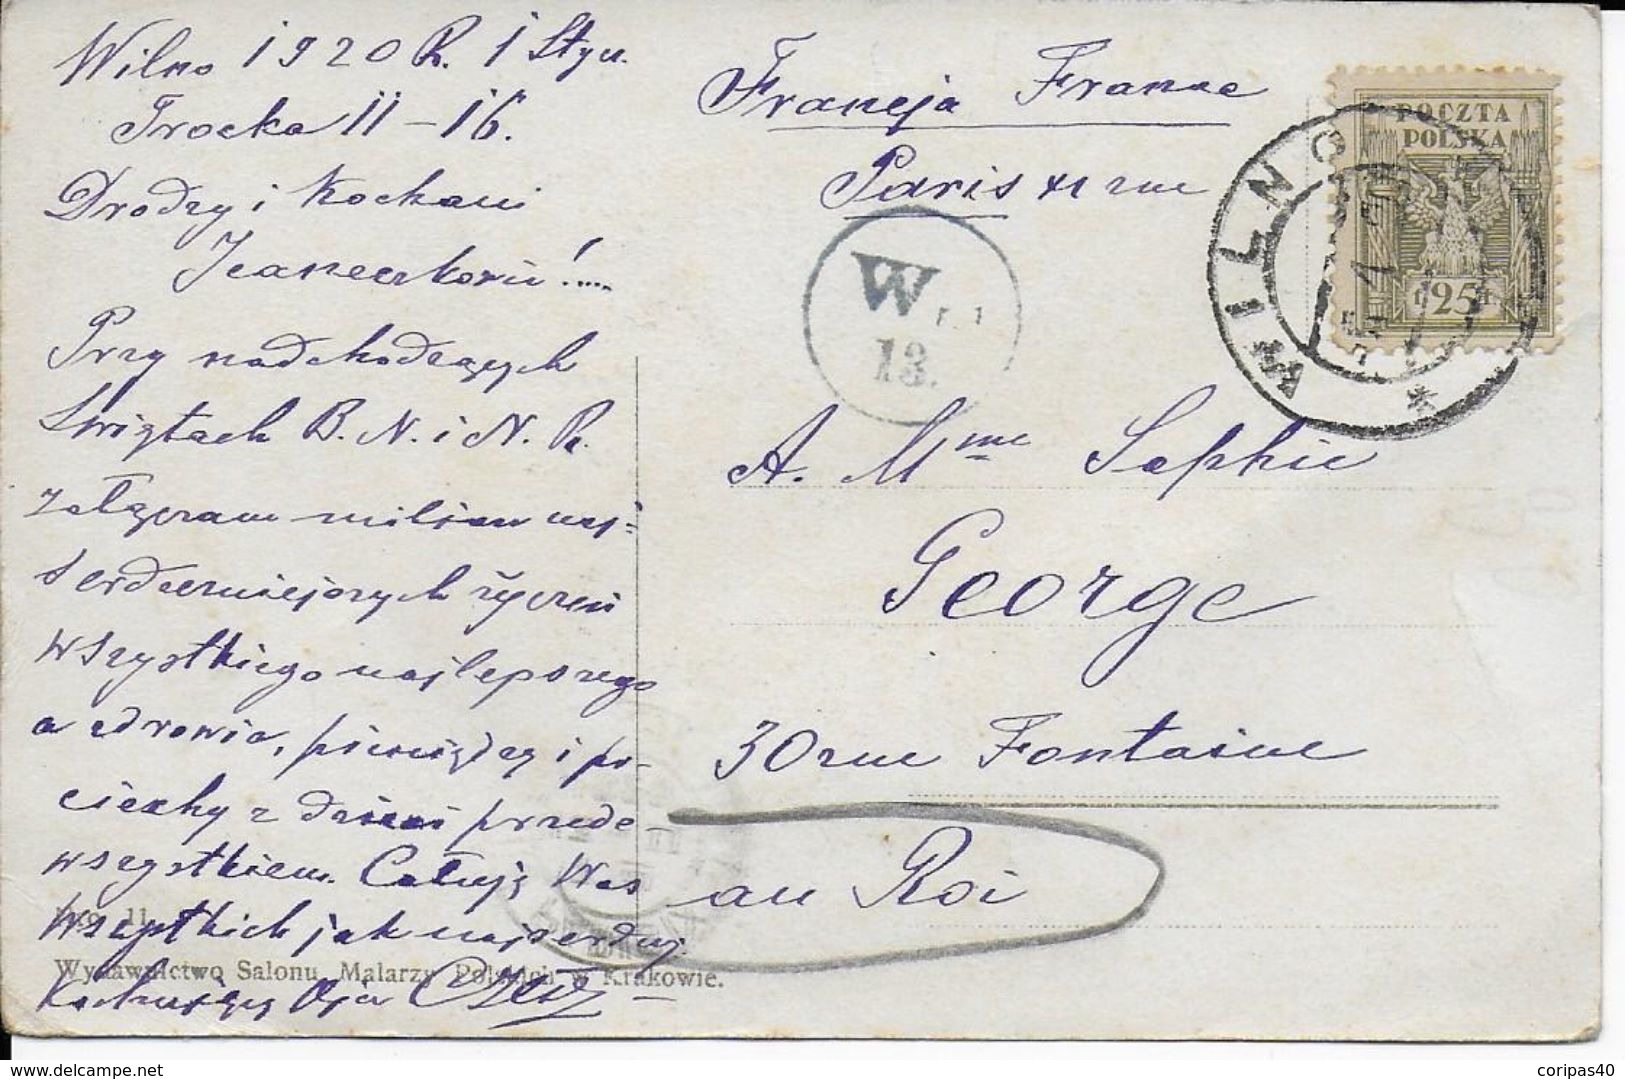 Wilno 1920 R. 1 Stycz.
Trocka 11-16.
Drodzy i Kochani
Przy nadchodzących
Świętach B. N. i N. R.
załączam milion naj-
serdeczniejszych życzeń
wszystkiego najlepszego
a zdrowia, pieniędzy i po-
ciechy z dzieci przede-
wszystkiem. Całuję Was
wszystkich jak najserdecz.
Kochający Ojciec
Francja France
Paris rue
POCZTA
POLSKA
25
WILNO
W
13.
A. Mme Sophie
George
30 rue Fontaine
au Roi
11
Wydawnictwo Salonu Malarzy Polskich w Krakowie.
coripas40